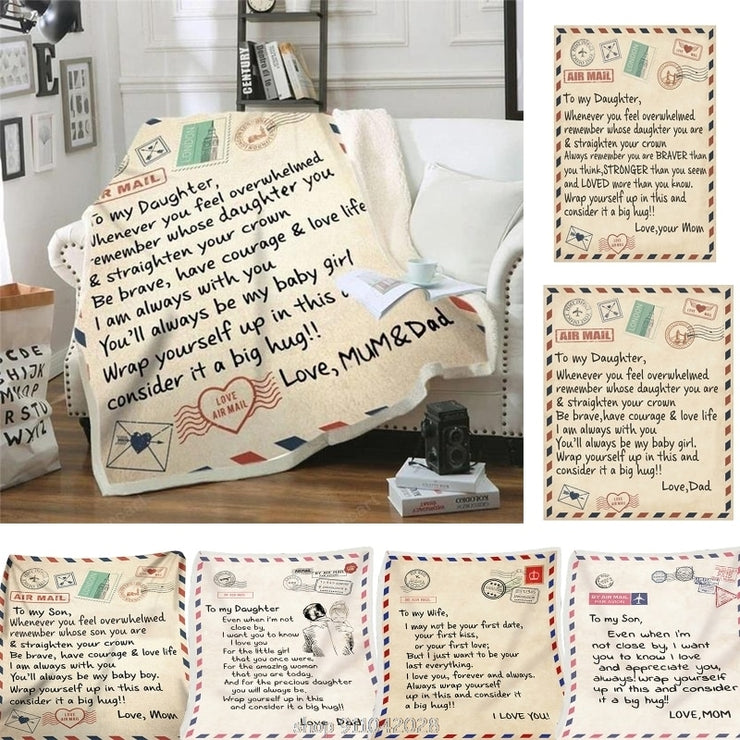 CENTURY
LONDON
R MAIL
o my Daughter,
henever you feel overwhelmed
remember whose daughter you
& straighten your crown
Be brave, have courage & love life
I am always with you
You'll always be my baby girl
Wrap yourself up in this
consider it a big hug!!
Love, MUM&Dad
LOVE
AIR MAIL
AIR MAIL
LONDON
To my Daughter,
Whenever you feel overwhelmed
remember whose daughter you are
& straighten your crown
Always remember you are BRAVER than
you think,STRONGER than you seem
and LOVED more than you know.
Wrap yourself up in this and
consider it a big hug!!
Love,your Mom
LOVE
AIR MAIL
AIR MAIL
LONDON
To my Daughter,
Whenever you feel overwhelmed
remember whose daughter you are
& straighten your crown
Be brave,have courage & love life
I am always with you
You'll always be my baby girl.
Wrap yourself up in this and
consider it a big hug!!
Love,Dad
LOVE
AIR MAIL
AIR MAIL
To my Son,
Whenever you feel overwhelmed
remember whose son you are
& straighten your crown
Be brave, have courage & love life
I am always with you
You'll always be my baby boy.
Wrap yourself up in this and
consider it a big hug!!
Love, Mom
To my Daughter
Even when i'm not
close by,
I want you to know
I love you
For the little girl
that you once were.
For the amazing woman
that you are today.
And for the precious daughter
you will always be,
Wrap yourself up in this
and consider it a big hug!!
Love, Dad
To my Wife,
I may not be your first date,
your first kiss,
or your first love;
But I just want to be your
last everything.
I love you, forever and always.
Always wrap yourself
up in this and consider it
a big hug!!
I LOVE YOU!
BY AIR MAIL
PAR AVION
To my Son,
Even when i'm
not close by, I want
you to know I love
and appreciate you,
always! wrap yourself
up in this and consider
it a big hug!!
LOVE, MOM
shop 911042028